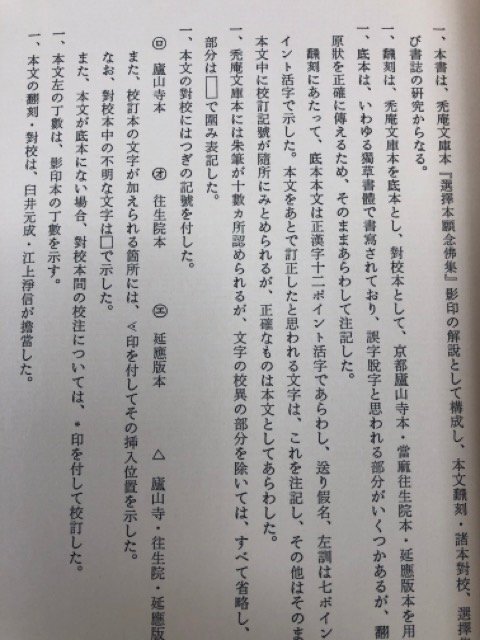 一、本書は、禿庵文庫本『選擇本願念佛集』影印の解説として構成し、本文飜刻・諸本對校、選擇
び書誌の研究からなる。
一、飜刻は、禿庵文庫本を底本とし、對校本として、京都廬山寺本・當麻往生院本・延應版本を用
一、底本は、いわゆる獨草書體で書寫されており、誤字脱字と思われる部分がいくつかあるが、飜
原狀を正確に傳えるため、そのままあらわして注記した。
飜刻にあたって、底本本文は正漢字十二ポイント活字であらわし、送り假名、左訓は七ポイン
イント活字で示した。本文をあとで訂正したと思われる文字は、これを注記し、その他はそのま
本文中に校訂記號が隨所にみとめられるが、正確なものは本文としてあらわした。
一、禿庵文庫本には朱筆が十數カ所認められるが、文字の校異の部分を除いては、すべて省略し、
部分は□で圍み表記した。
一、本文の對校にはつぎの記號を付した。
㋺ 廬山寺本 ㋔ 往生院本 ㋓ 延應版本 △ 廬山寺・往生院・延應版
また、校訂本の文字が加えられる箇所には、<印を付してその挿入位置を示した。
なお、對校本中の不明な文字は□で示した。
また、本文が底本にない場合、對校本間の校注については、*印を付して校訂した。
一、本文左の丁數は、影印本の丁數を示す。
一、本文の飜刻・對校は、臼井元成・江上淨信が擔當した。